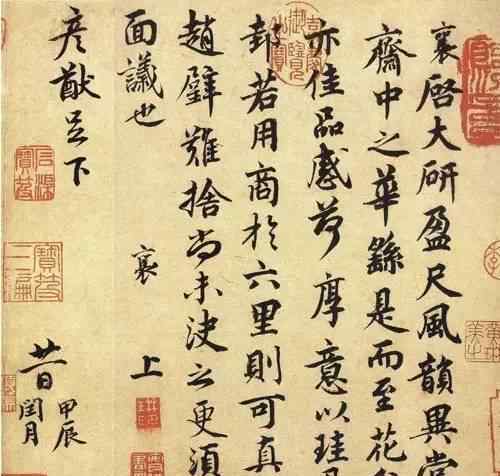 襄啓大研盈尺風韻異常
齋中之華繇是而至花
亦佳品感荷厚意以珪
邽若用商於六里則可真
趙璧難捨尚未決之更須
面議也 襄 上
彥猷足下
廿一日 甲辰
閏月